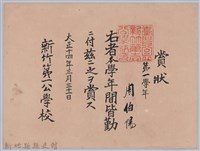 賞狀
第一學年
周伯陽
右者本學年間皆勤
ニ付茲ニ之ヲ賞ス
大正十四年三月二十一日
新竹第一公學校